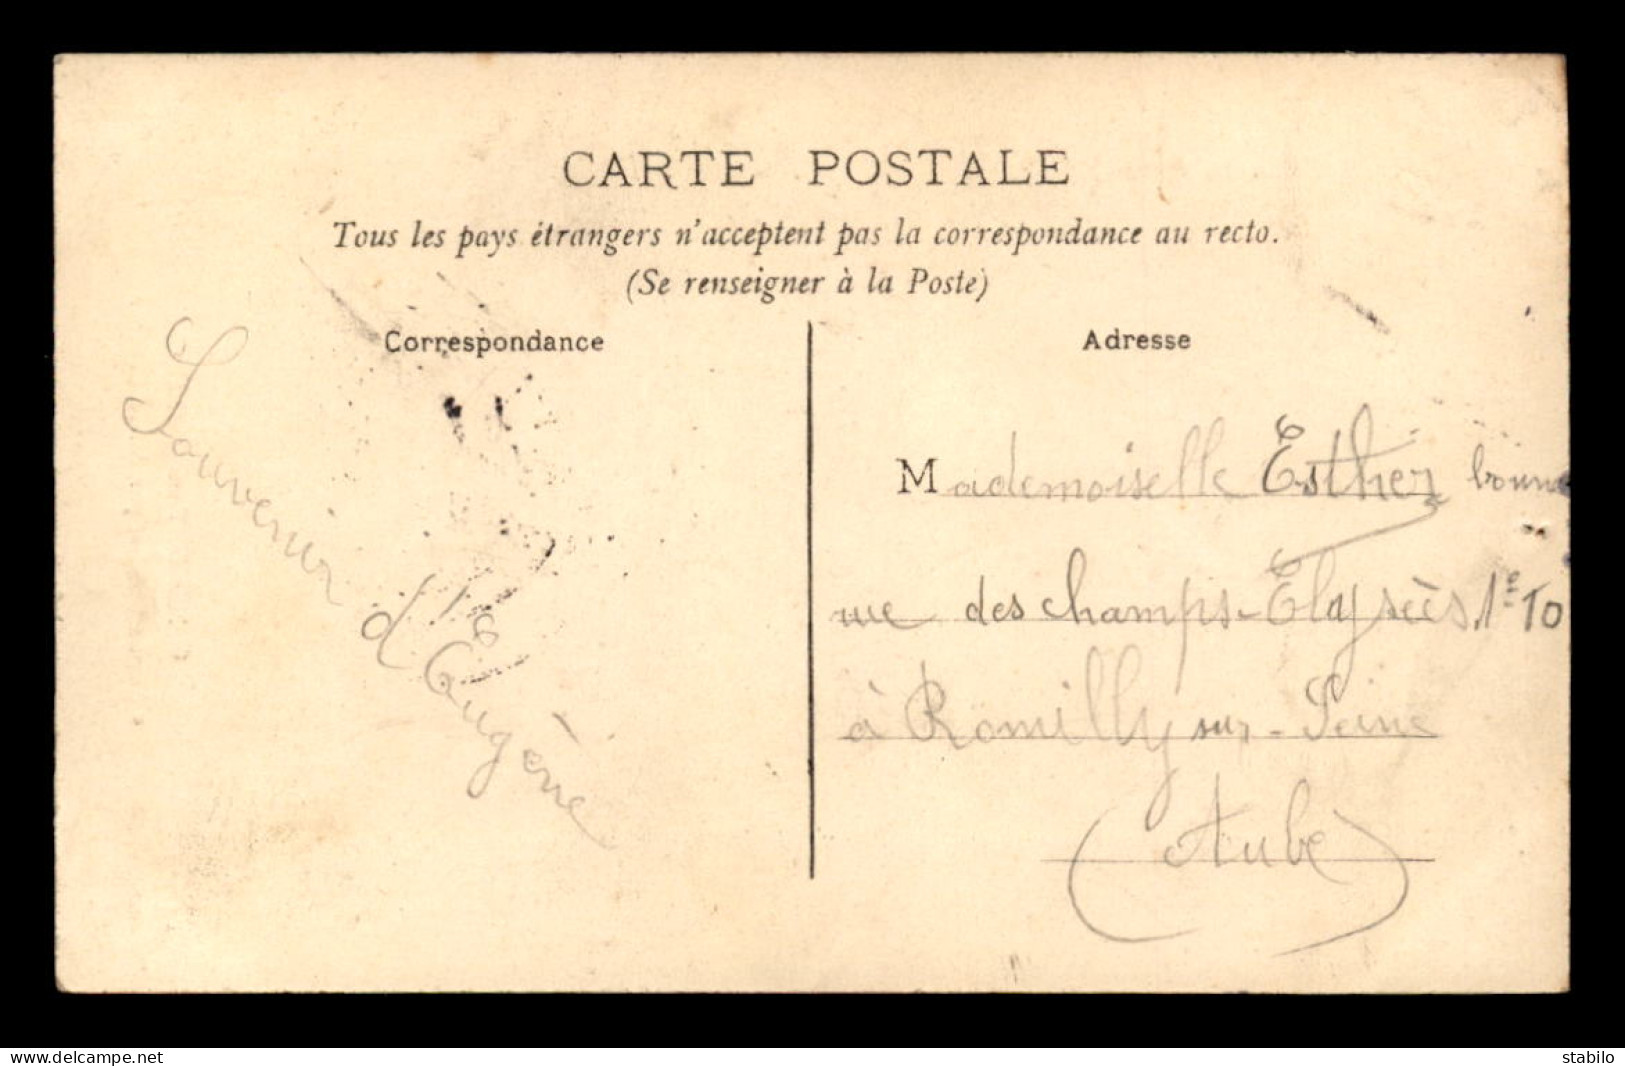 CARTE POSTALE
Tous les pays étrangers n'acceptent pas la correspondance au recto.
(Se renseigner à la Poste)
Correspondance
Souvenir d'Eugène
Adresse
Mademoiselle Esther bonne
rue des champs-Elysées, 10
à Romilly sur-Seine
(Aube)
www.delcampe.net
stabilo